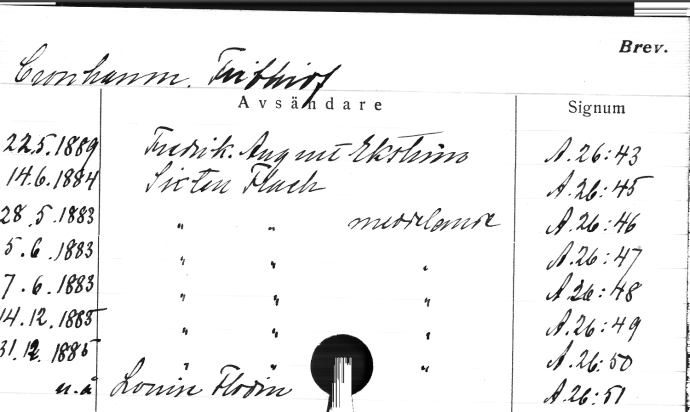 Brev.
Cronhamn, Frithiof
Avsändare Signum
22.5.1889 Fredrik August Ekström A.26:43
14.6.1884 Sixten Flach A.26:45
28.5.1883 " " meddelande A.26:46
5.6.1883 " " " A.26:47
7.6.1883 " " " A.26:48
14.12.1885 " " " A.26:49
31.12.1885 " " " A.26:50
u.å Louise Flodin A.26:51